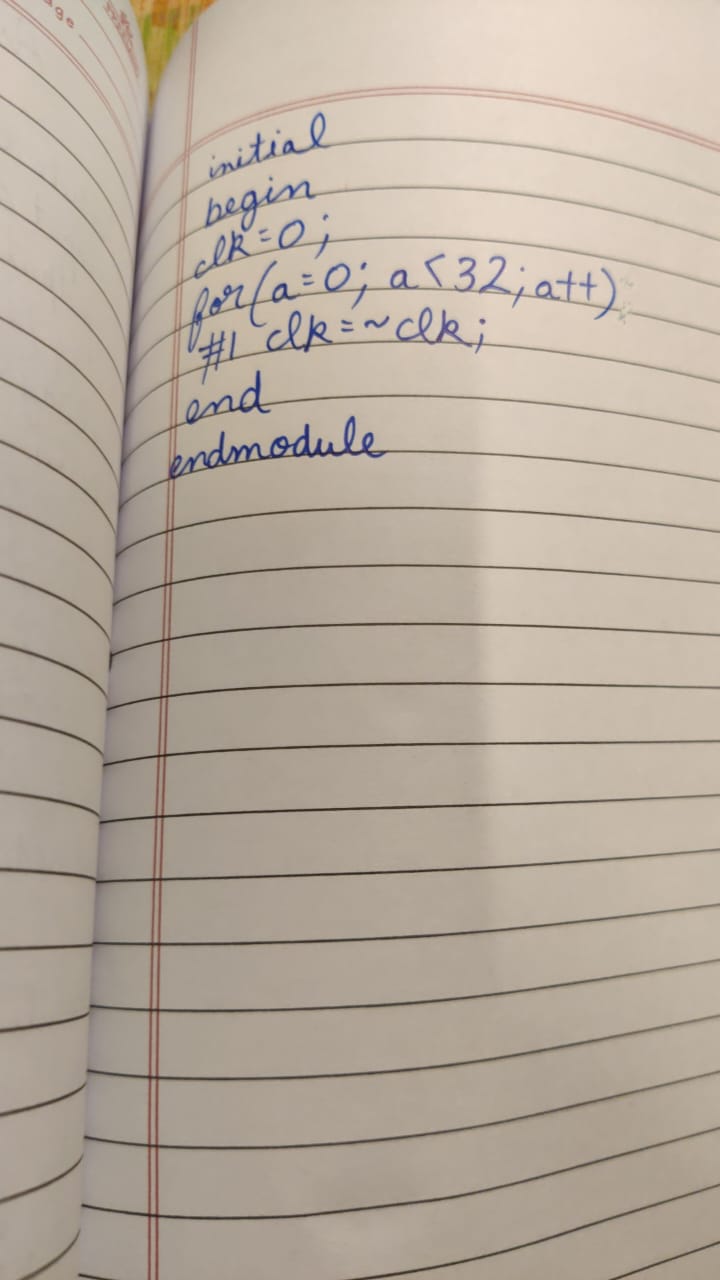 age
initial
begin
clk=0;
for(a=0; a<32; a++)
#1 clk=~clk;
end
endmodule